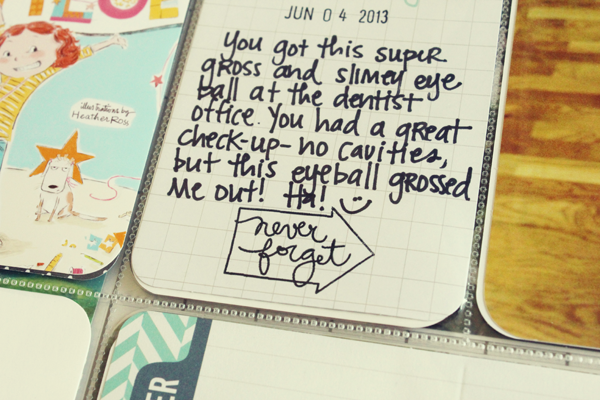 JUN 04 2013
You got this super
gross and slimey eye
ball at the dentist
office. You had a great
check-up- no cavities,
but this eyeball grossed
me out! Ha!
never
forget
illustrations by
Heather Ross
ER